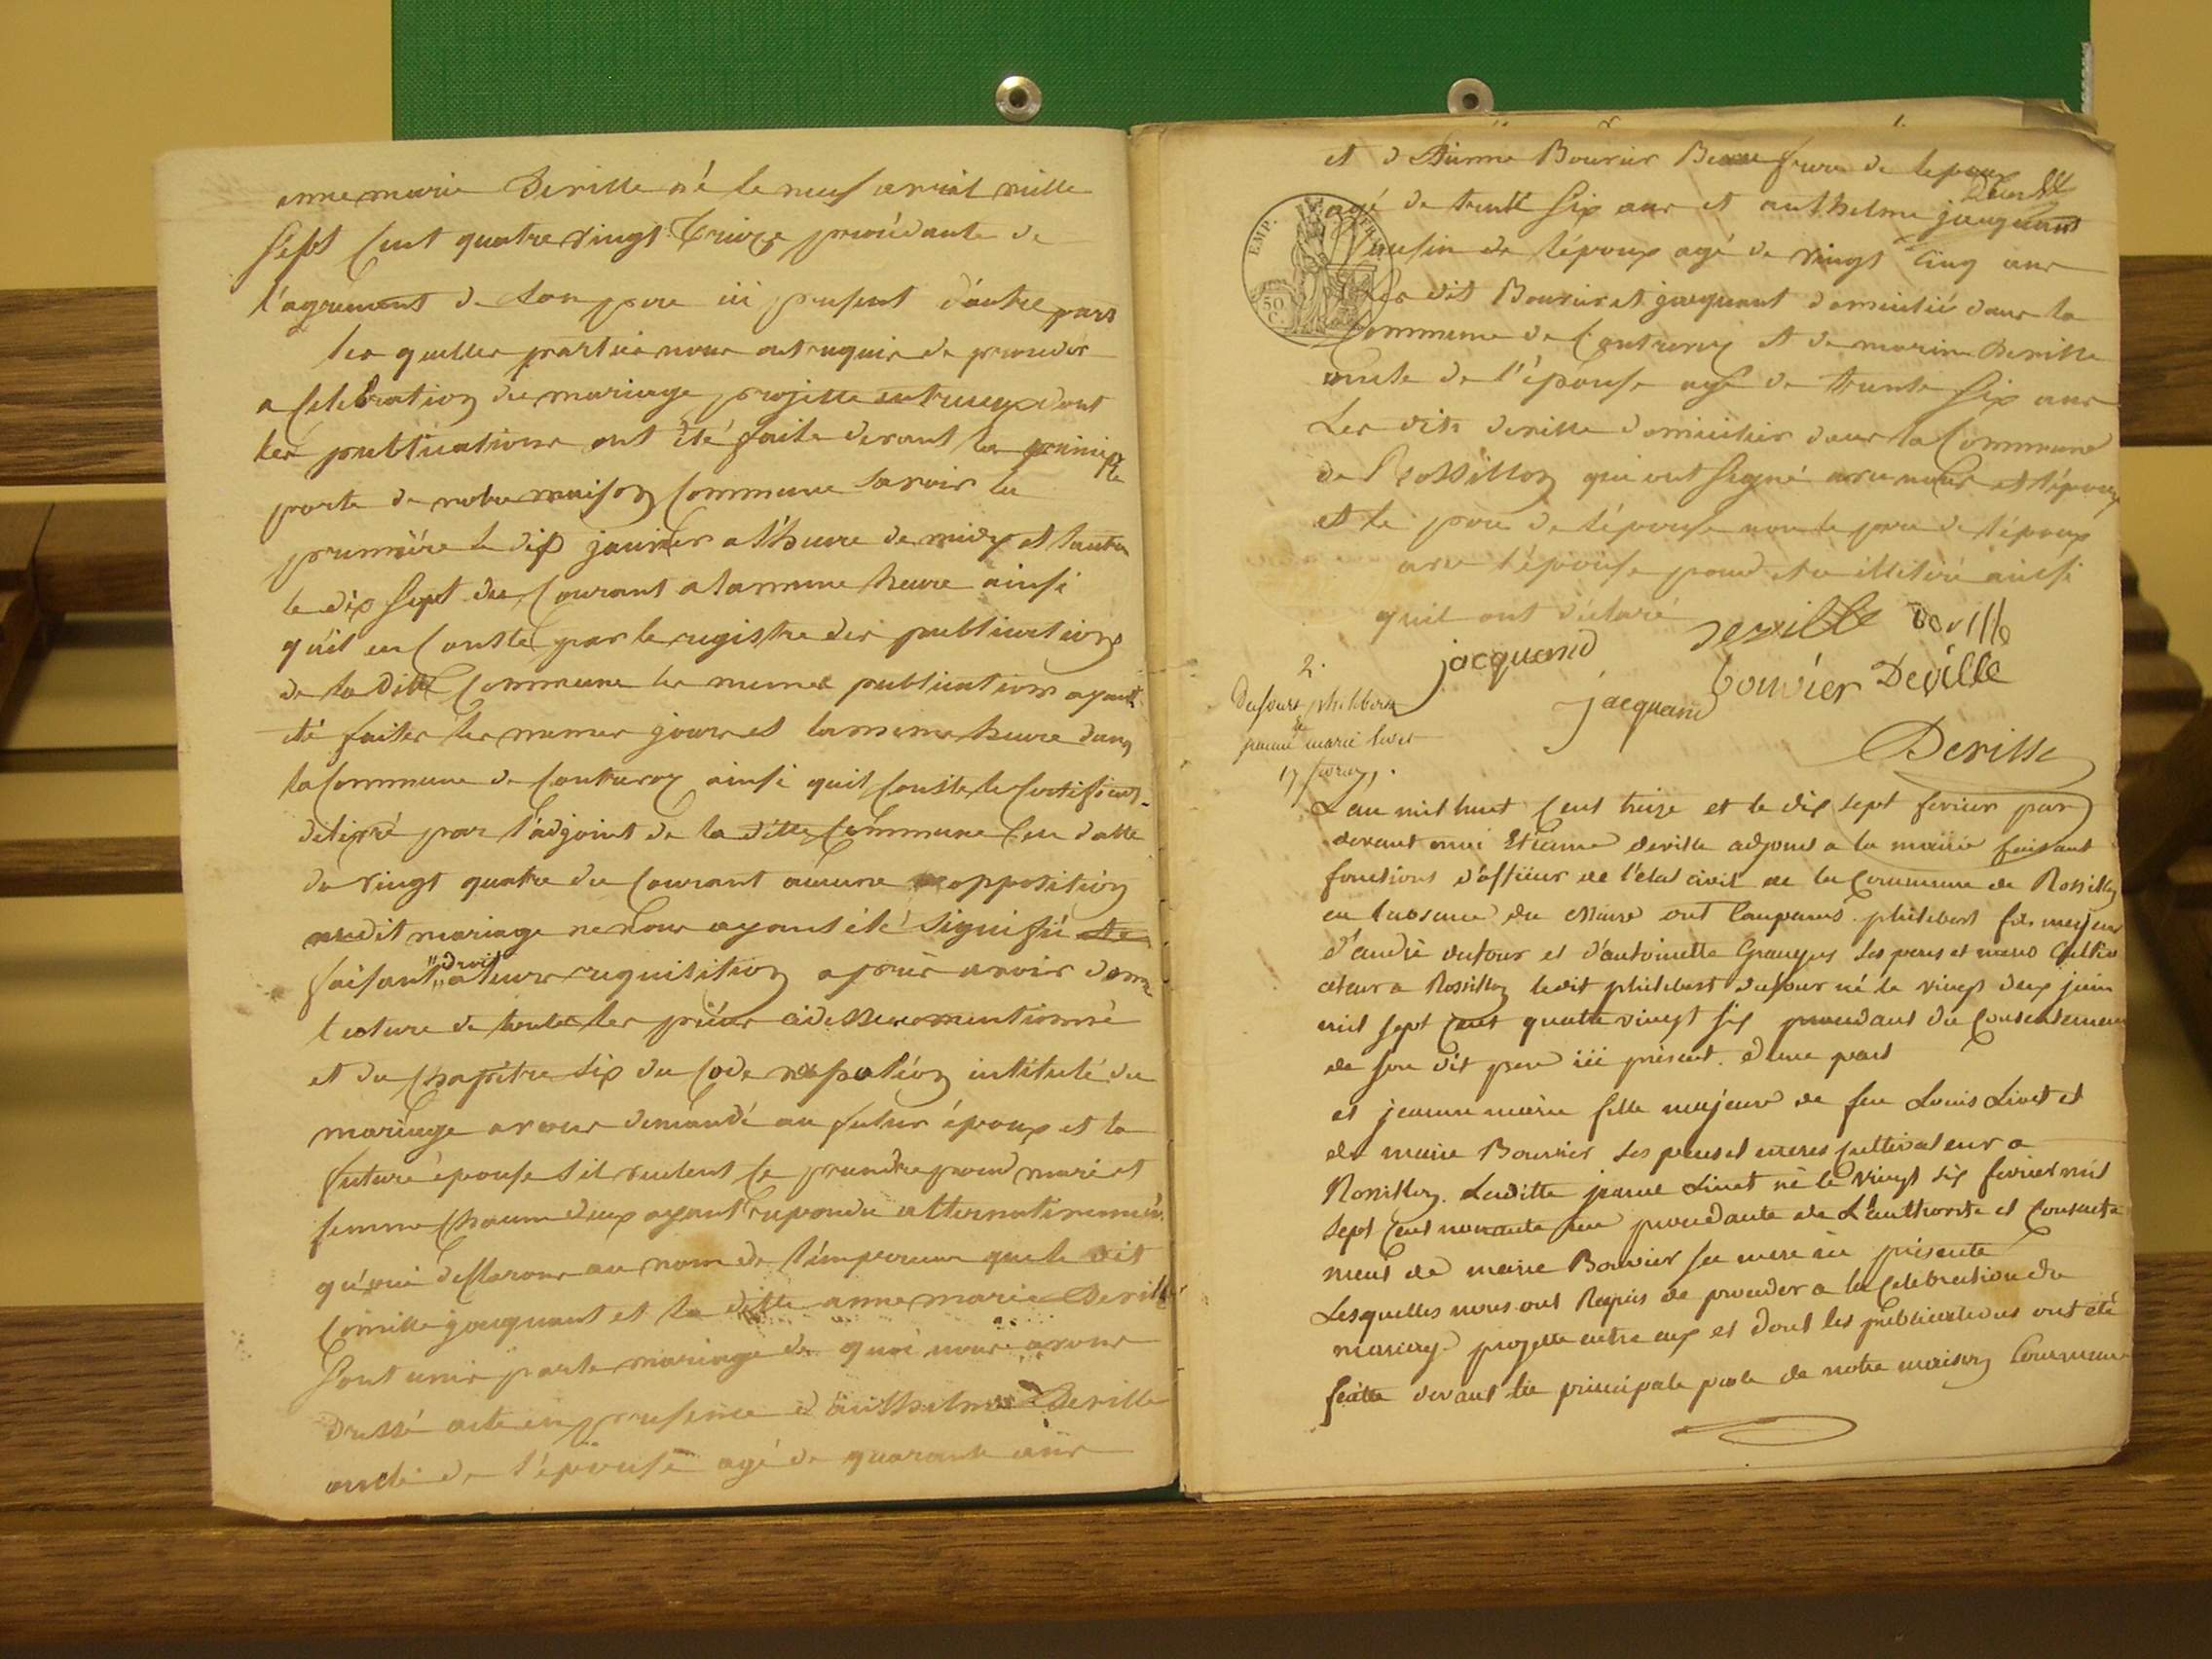 anne marie Deville né le neuf avrial mille
sept Cent quatre vingt treize procédante de
l'agrement de son pere ici present d'autre part
les quelles parties nous ont requis de proceder
a Celebration du mariage projette entreeux dont
les publications ont été faite devant la principale
porte de notre maison Commune savoir la
première le dix janvier a l'heure de midy et l'autre
le dix sept du Courant a la meme heure ainsi
qu'il en Conste par le registre des publications
de la ditte Commune les memes publications ayant
été faites les memes jours et la meme heure dans
la Commune de Contrevoz ainsi quil Conste le Certificat
delivré par l'adjoint de la ditte Commune en datte
du vingt quatre du Courant aucune opposition
audit mariage ne nous ayant été signifié
faisant droit a leur requisition apres avoir donné
lecture de toutes les pièces cidessus mentionné
et du Chapitre six du Code napoléon intitulé du
mariage avons demandé au futur époux et la
future épouse s'il veulent se prendre pour mari et
femme Chacun deux ayant repondu alternativement
qu'oui declarons au nom de l'empereur que le dit
Camille jacquant et la ditte anne marie Deville
sont unis par le mariage de quoi nous avons
dressé acte en presence d'anthelme Deville
oncle de l'épouse agé de quarante ans
et d'Etienne Bouvier Beau frere de lepoux
agé de trente six ans et anthelme jacquant
Cousin de l'époux agé de vingt Cinq ans
Les dit Bouvier et jacquant domicilié dans la
Commune de Contrevoz et de marin Deville
oncle de l'épouse agé de trente six ans
Les dits deville domicilier dans la Commune
de Rossillon qui ont signé avec nous et l'époux
et le pere de l'épouse non le pere de l'époux
avec l'épouse pour etre illitéré ainsi
quil ont déclaré
jacquand deville deville
jacquand bouvier Deville
Deville
2.
Dufour philibert
&
jeanne marie livet
17 fevrier.
L'an mil huit Cent treize et le dix sept fevrier par
devant moi Etienne deville adjoint a la mairie faisant
fonctions d'officier de l'état civil de la Commune de Rossillon
en l'absence du Maire ont Comparus philibert fils majeur
d'andré dufour et d'antoinette Grangers ses peres et meres Cultiv
ateur a Rossillon ledit philibert dufour né le vingt deux juin
mil sept Cent quatre vingt six procedant du Consentement
de son dit pere ici présent d'une part
et jeanne marie fille majeure de feu Louis Livet et
de marie Bouvier ses peres et meres Cultivateur a
Rossillon. Laditte jeanne Livet né le vingt six fevrier mil
sept Cent nonante un procedante de L'authorité et Consente
ment de marie Bouvier sa mere ici présente
Lesquelles nous ont Requis de proceder a la Celebration du
mariage projette entre eux et dont les publications ont été
faitte devant la principale porte de notre maison Commune
EMP. FR.
50
C.